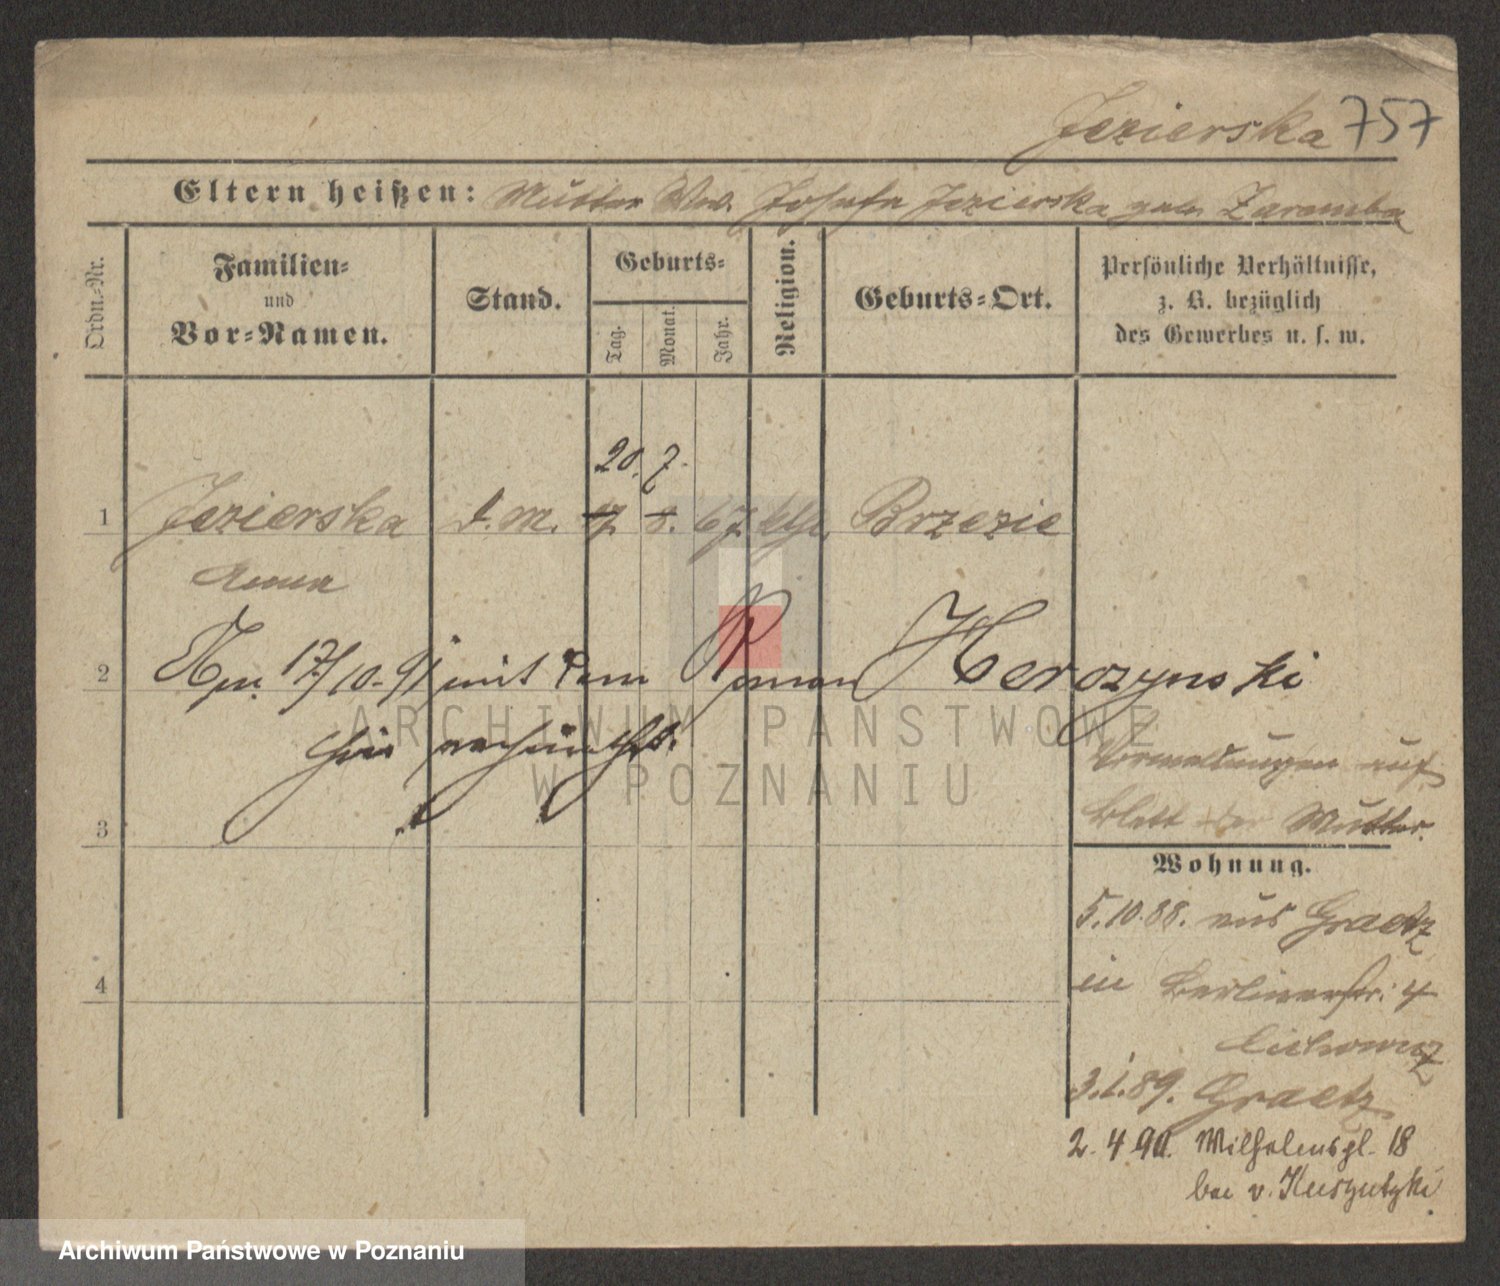 Jezierska 757
Eltern heißen: Mutter Ww. Josefa Jezierska geb. Zaremba
Ordn.-Nr.
Familien-
und
Vor-Namen.
Stand.
Geburts-
Tag.
Monat.
Jahr.
Religion.
Geburts-Ort.
Persönliche Verhältnisse,
z. B. bezüglich
des Gewerbes u. s. w.
20. 7.
1 Jezierska d. M. 17. 8. 67. kth. Brzezie
Anna
2 17/10. 91 mit dem Roman Herczynski
hier
Vormeldungen auf
Blatt der Mutter.
3
Wohnung.
5.10.88. aus Graetz
4
in Berlinerstr. 4
3.1.89. Graetz
2. 4 90. Wilhelmspl. 18
bei v.
ARCHIWUM PAŃSTWOWE
W POZNANIU
Archiwum Państwowe w Poznaniu